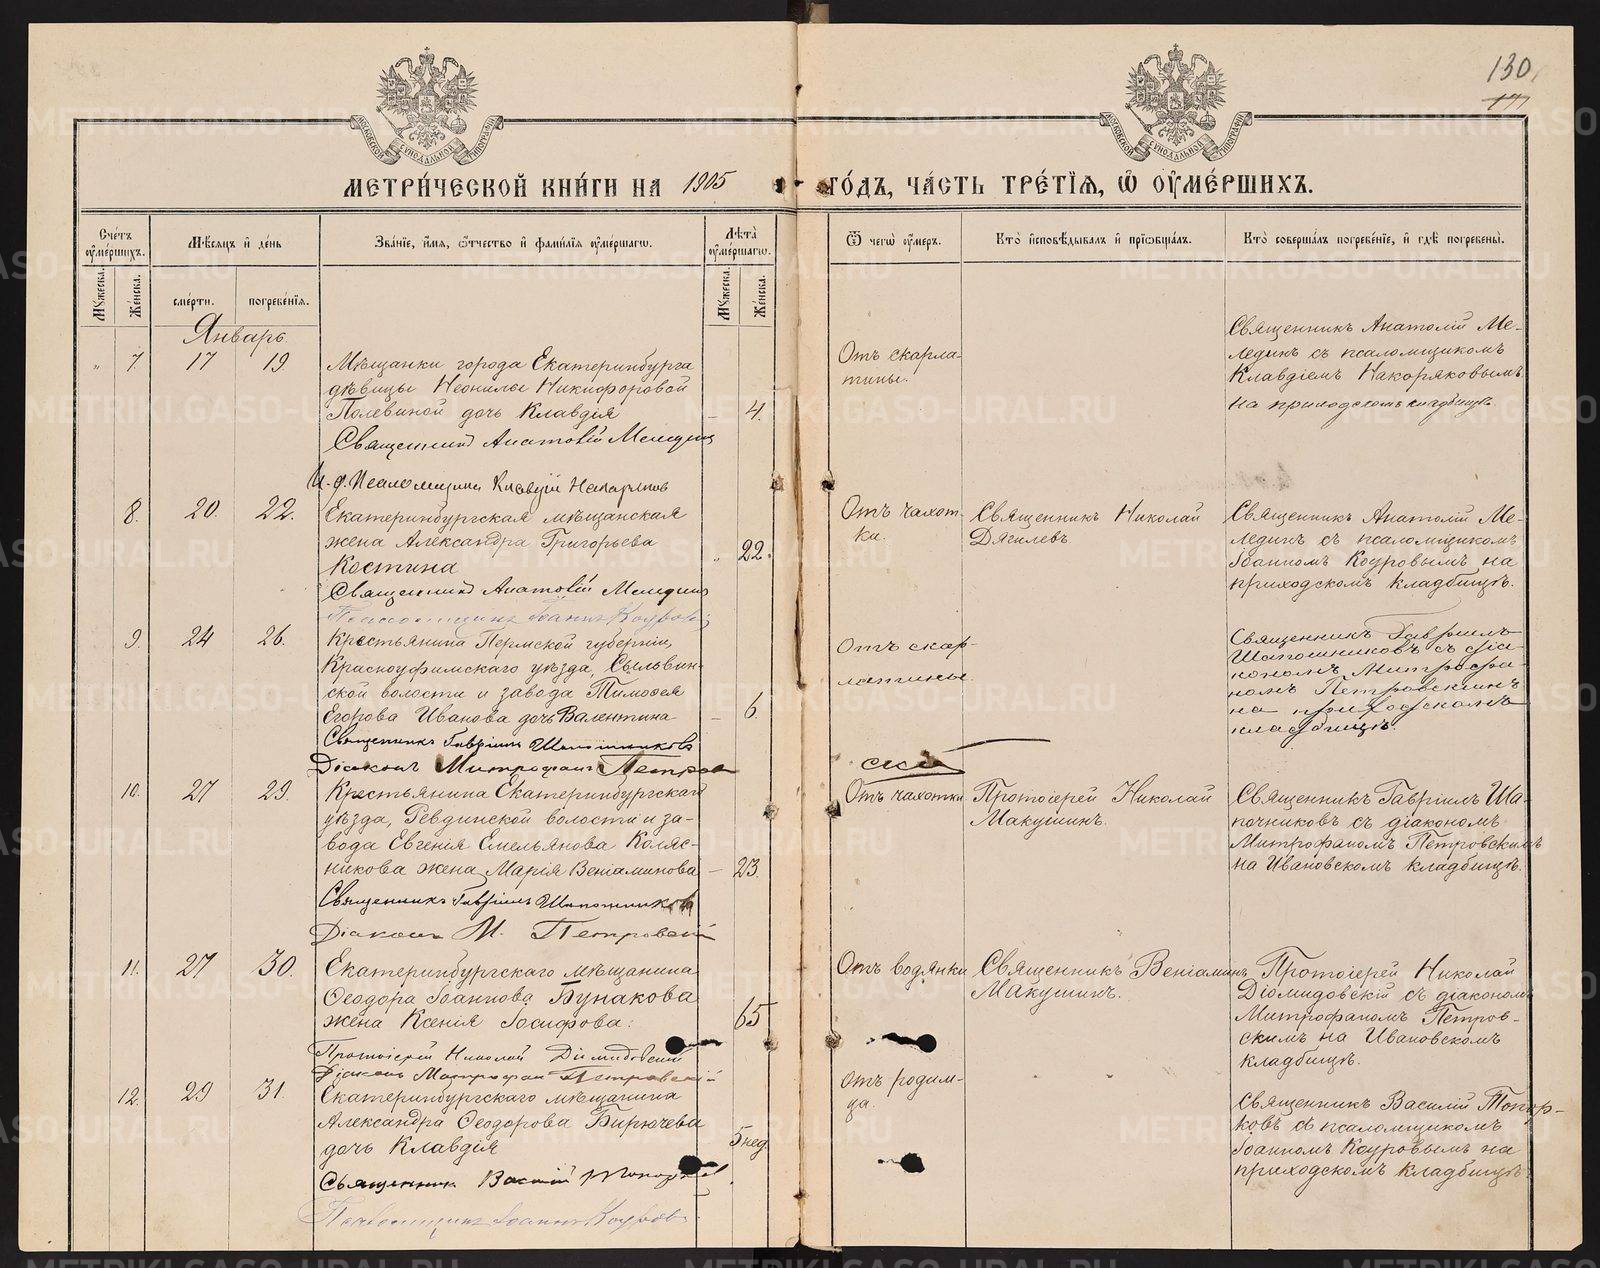 130
МЕТРИ́ЧЕСКОЙ КНИ́ГИ НА 1905 ГО́ДЪ, ЧА́СТЬ ТРЕ́ТІЯ, Ѿ ОУМЕ́РШИХЪ.
Сче́тъ оумє́ршихъ.
Му́жеска.
Же́нска.
Мѣ́сяцъ и де́нь
сме́рти.
погребе́нія.
Зва́ніе, и́мя, ѻ́тчество и фами́лія оуме́ршагѡ.
Лѣ́та оуме́ршагѡ.
Му́жеска.
Же́нска.
Ѿ чегѡ̀ оу́меръ.
Кто̀ исповѣ́дывалъ и пріѡбща́лъ.
Кто̀ соверша́лъ погребе́ніе, и гдѣ̀ погребены̀.
Январь.
" 7. 17 19.
Мѣщанки города Екатеринбурга
дѣвицы Неонилы Никифоровой
Полевиной дочь Клавдія
– 4.
Священникъ Анатолій Меледин
И. д. Псаломщика Клавдій Накоряков
Отъ скарла-
тины.
Священникъ Анатолій Ме-
лединъ съ псаломщикомъ
Клавдіемъ Накоряковымъ
на приходскомъ кладбищѣ.
8. 20. 22.
Екатеринбургская мѣщанская
жена Александра Григорьева
Костина
" 22.
Священникъ Анатолій Меледин
Псаломщикъ Іоаннъ Коуровъ
Отъ чахот-
ки.
Священникъ Николай
Дягилевъ.
Священникъ Анатолій Ме-
лединъ съ псаломщикомъ
Іоанномъ Коуровымъ на
приходскомъ кладбищѣ.
9. 24 26.
Крестьянина Пермской губерніи,
Красноуфимскаго уѣзда, Сылвин-
ской волости и завода Тимоѳея
Егорова Иванова дочь Валентина
– 6.
Священникъ Гавріилъ Шапошниковъ
Діаконъ Митрофанъ Петров
скій
Отъ скар-
латины.
Священникъ Гавріилъ
Шапошниковъ съ діа-
кономъ Митрофа-
номъ Петровскимъ
на приходскомъ
кладбищѣ.
10. 27 29.
Крестьянина Екатеринбургскаго
уѣзда, Ревдинской волости и за-
вода Евгенія Емельянова Коляс-
никова жена Марія Веніаминова
– 23.
Священникъ Гавріилъ Шапошниковъ
Діаконъ М. Петровскій
Отъ чахотки
Протоіерей Николай
Макушинъ.
Священникъ Гавріилъ Ша-
почниковъ съ діакономъ
Митрофаномъ Петровскимъ
на Ивановскомъ кладбищѣ.
11. 27 30.
Екатеринбургскаго мѣщанина
Ѳеодора Іоаннова Бунакова
жена Ксенія Іосифова.
65
Протоіерей Николай Діомидовскій
Діаконъ Митрофан Петровскій
Отъ водянки
Священникъ Веніаминъ
Макушинъ.
Протоіерей Николай
Діомидовскій съ діакономъ
Митрофаномъ Петров-
скимъ на Ивановскомъ
кладбищѣ.
12. 29 31.
Екатеринбургскаго мѣщанина
Александра Ѳеодорова Бирючева
дочь Клавдія
5 нед.
Священник Василій Топорков
Псаломщикъ Іоаннъ Коуровъ
Отъ родим-
ца.
Священникъ Василій Топор-
ковъ съ псаломщикомъ
Іоанномъ Коуровымъ на
приходскомъ кладбищѣ.
METRIKI.GASO-URAL.RU